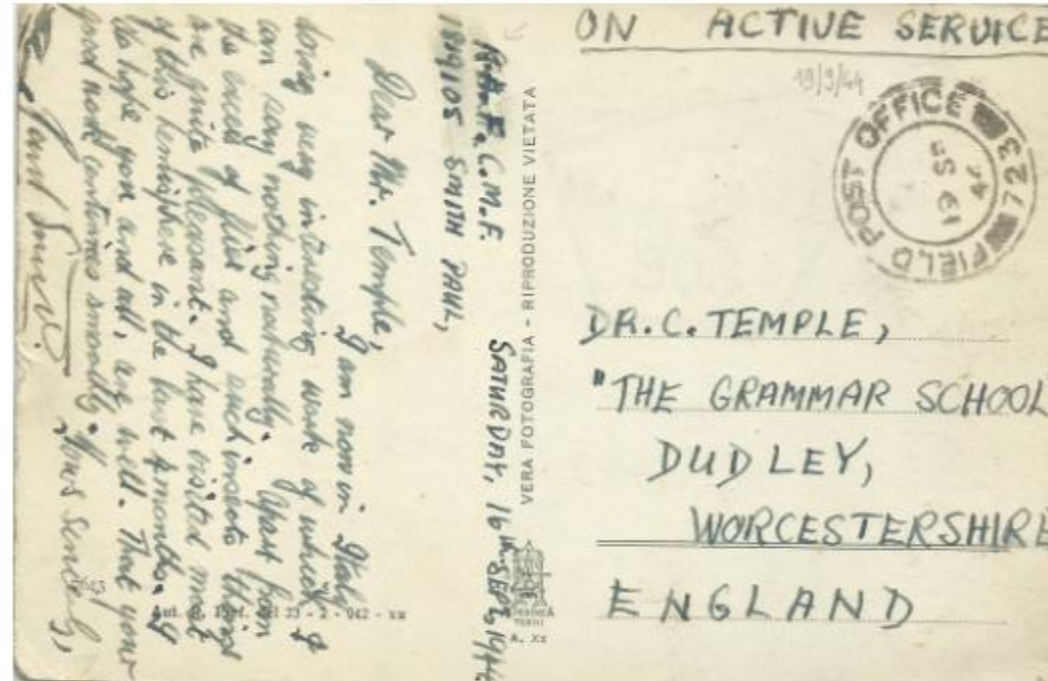 ON ACTIVE SERVICE
19/9/44
FIELD POST OFFICE 723
19 SE
44
DR. C. TEMPLE,
"THE GRAMMAR SCHOOL
DUDLEY,
WORCESTERSHIRE
ENGLAND
VERA FOTOGRAFIA - RIPRODUZIONE VIETATA
TERNI
A. XX
SMITH PAUL,
C.M.F. SATURDAY, 16th SEPT. 1944
Dear Mr. Temple,
I am now in Italy
doing very interesting work of which I
can say nothing naturally. Apart from
the excess of flies and such insects things
are quite pleasant. I have visited most
of this hemisphere in the last 4 months. I
do hope you and all, are well. That your
good work continues smoothly. Yours sincerely,
Paul Smith.
23 - 2 - 942 - XX